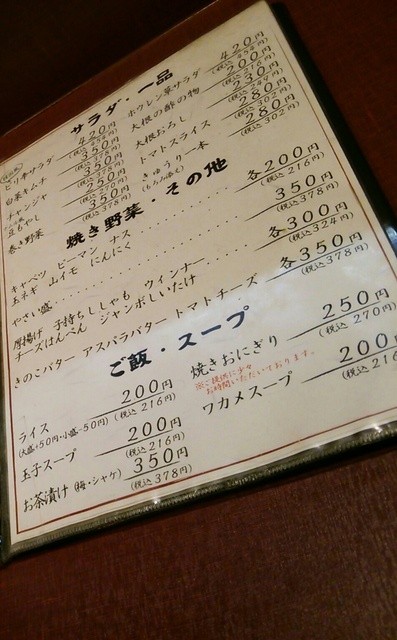 サラダ・一品
ピリ辛サラダ 420円
(税込454円)
白菜キムチ 350円
(税込378円)
チャンジャ 350円
(税込378円)
豆もやし 250円
(税込270円)
巻き野菜 350円
(税込378円)
ホウレン草サラダ 420円
大根の酢の物 200円
(税込216円)
大根おろし 230円
トマトスライス 280円
(税込302円)
きゅうり一本 280円
(税込302円)
焼き野菜・その他
キャベツ ピーマン ナス
玉ネギ 山イモ にんにく 各200円
(税込216円)
やさい盛 350円
(税込378円)
厚揚げ 子持ちししゃも ウィンナー
チーズはんぺん ジャンボしいたけ 各300円
(税込324円)
きのこバター アスパラバター トマトチーズ 各350円
(税込378円)
ご飯・スープ
ライス 200円
(大盛+50円・小盛-50円) (税込216円)
玉子スープ 200円
(税込216円)
お茶漬け (梅・シャケ) 350円
(税込378円)
焼きおにぎり 250円
※ご提供に少々
お時間いただいております。
(税込270円)
ワカメスープ 200
(税込216